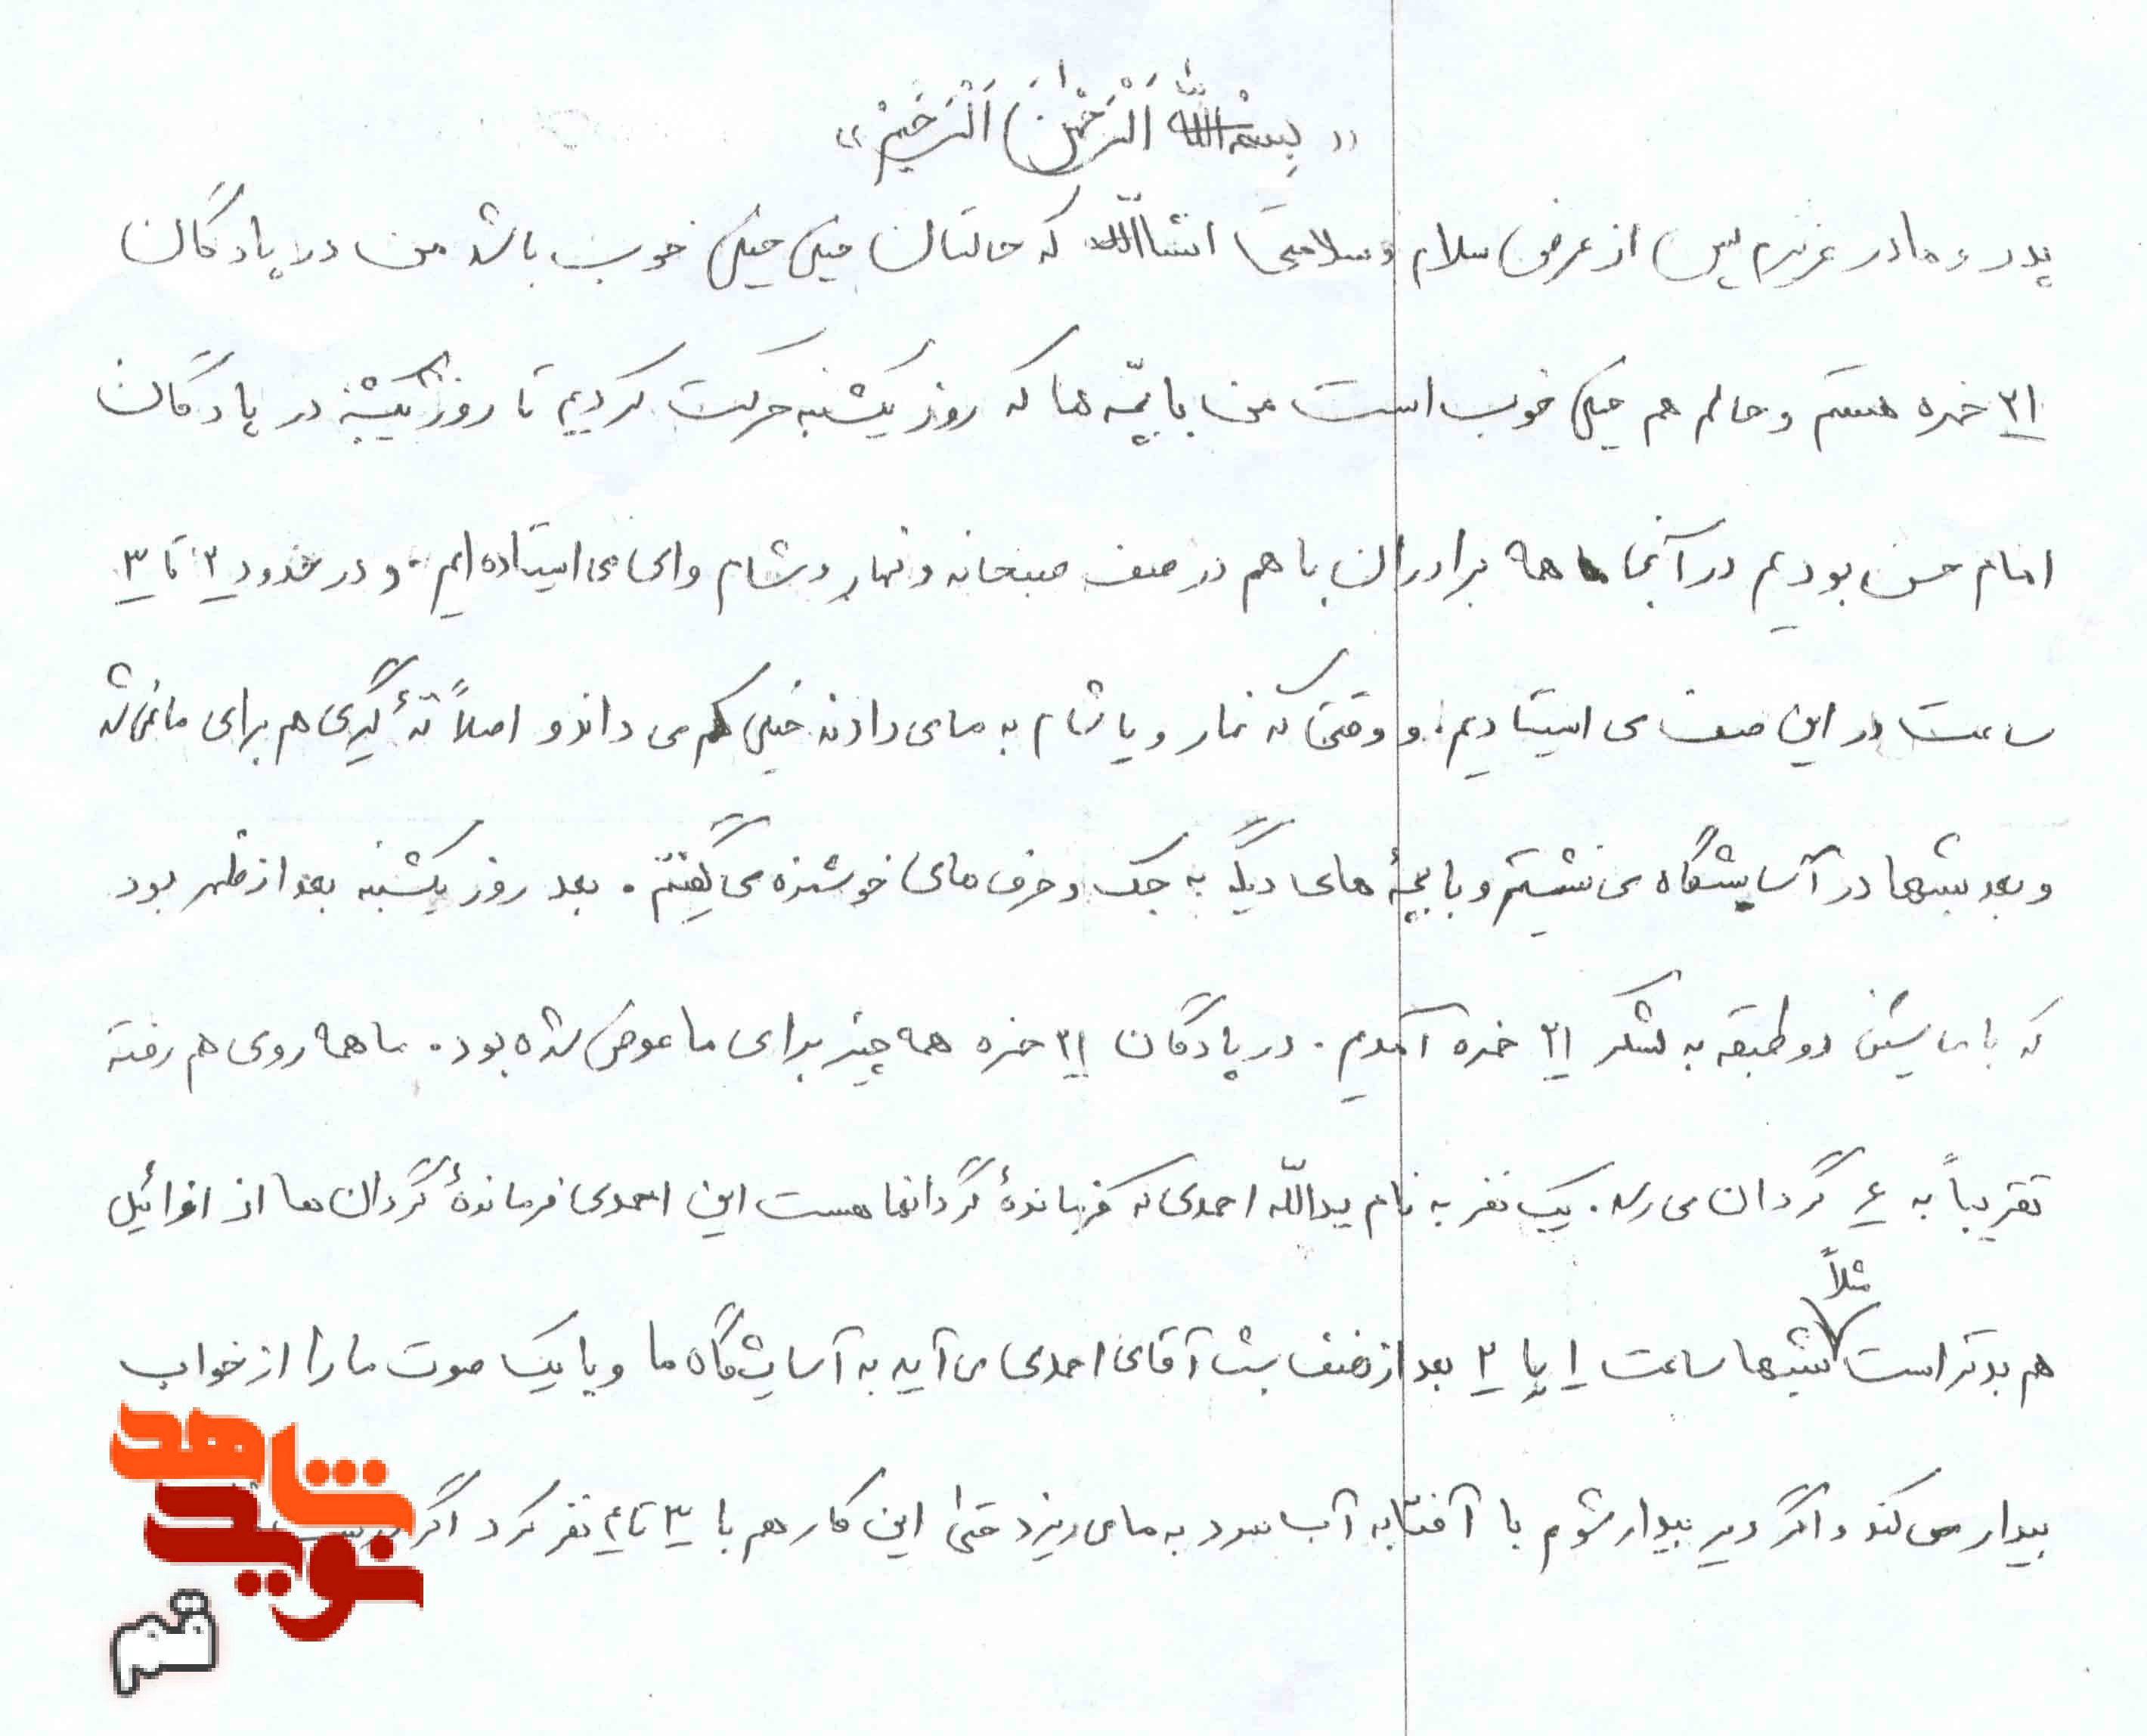 « بِسْمِ اللّٰهِ اَلْرَحْمٰنِ اَلْرَحیمْ »
پدر و مادر عزیزم پس از عرض سلام و سلامتی انشاالله که حالتان خیلی خیلی خوب باشد من در پادگان
۳۱ حمزه هستم و حالم هم خیلی خوب است من با بچّه ها که روز یکشنبه حرکت کردیم تا روز یکشنبه در پادگان
امام حسن بودیم در آنجا همه برادران با هم در صف صبحانه و نهار و شام وای می ایستاده ایم. و در حدود ۲ تا ۳
ساعت در این صف می ایستادیم. و وقتی که نهار و یا شام به ما می دادند خیلی کم می دادند و اصلاً ته گیری هم برای ما نمی شد
و بعد شبها در آسایشگاه می نشستیم و با بچهٔ های دیگه به جک و حرف های خوشمزه می گفتیم . بعد روز یکشنبه بعد از ظهر بود
که با ماشین دو طبقه به لشکر ۳۱ حمزه آمدیم . در پادگان ۳۱ حمزه همه چیز برای ما عوض شده بود . ما همه روی هم رفته
تقریباً به ۶ گردان می رسد . یک نفر به نام یداللّه احمدی که فرماندهٔ گردانها هست این احمدی فرماندهٔ گردان ها از
هم بدتر است مثلاً شبها ساعت ۱ یا ۲ بعد از نصف شب آقای احمدی می آید به آسایشگاه ما و با یک صوت ما را از خواب
بیدار می کند و اگر دیر بیدار شوم با آفتابه آب سرد به ما می ریزد حتیٰ این کار هم با ۳ تا ۴ نفر کرد اگر
شاهد
نوید
قم